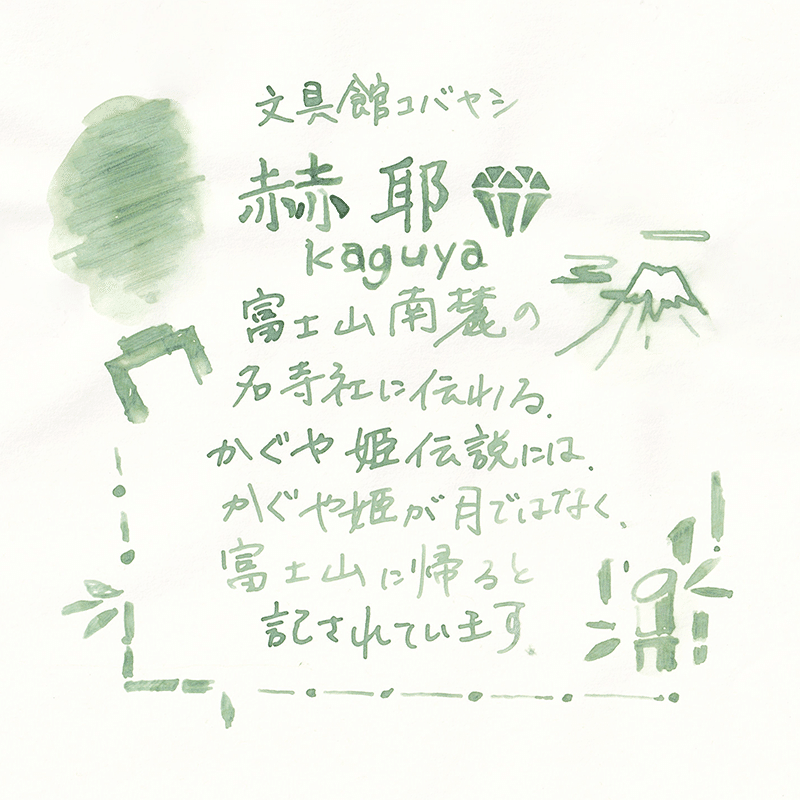 文具館コバヤシ
赫耶
kaguya
富士山南麓の
名寺社に伝わる、
かぐや姫伝説には、
かぐや姫が月ではなく、
富士山に帰ると
記されています。